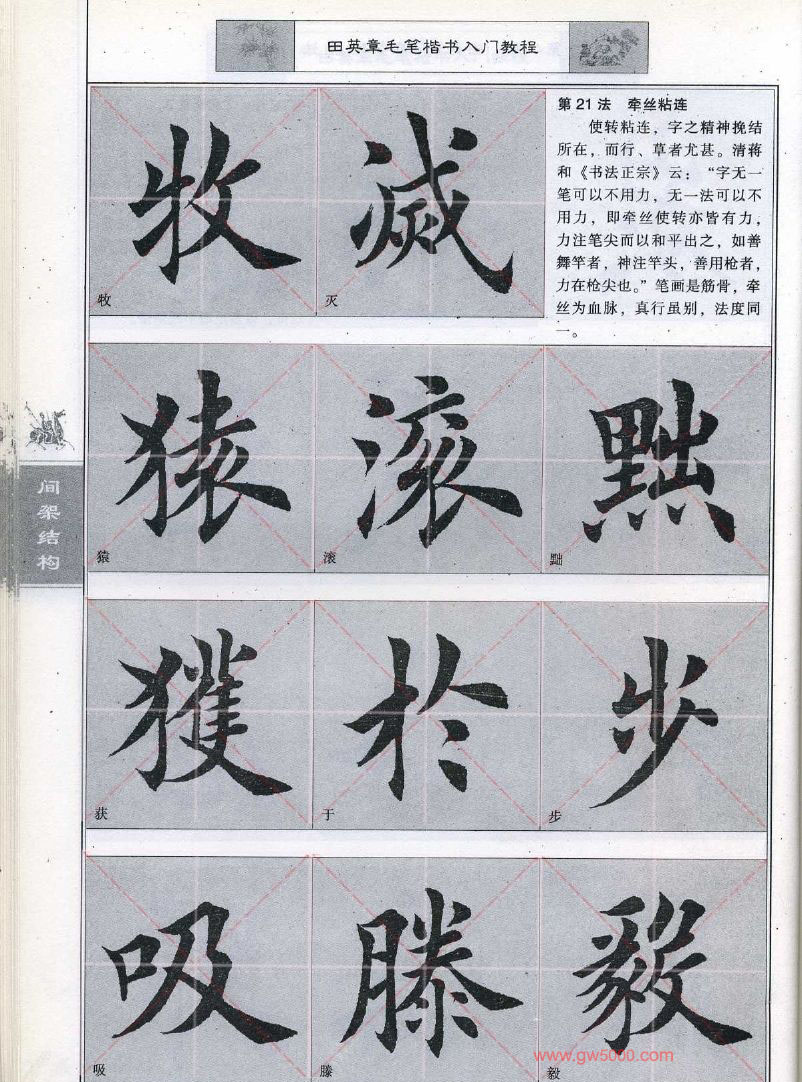 田英章毛笔楷书入门教程
第21法 牵丝粘连
使转粘连，字之精神挽结
所在，而行、草者尤甚。清蒋
和《书法正宗》云：“字无一
笔可以不用力，无一法可以不
用力，即牵丝使转亦皆有力，
力注笔尖而以和平出之，如善
舞竿者，神注竿头，善用枪者，
力在枪尖也。”笔画是筋骨，牵
丝为血脉，真行虽别，法度同
一。
牧 滅
牧 灭
猿 滚 黜
猿 滚 黜
间架结构
獲 於 步
获 于 步
吸 滕 毅
吸 滕 毅
www.gw5000.com